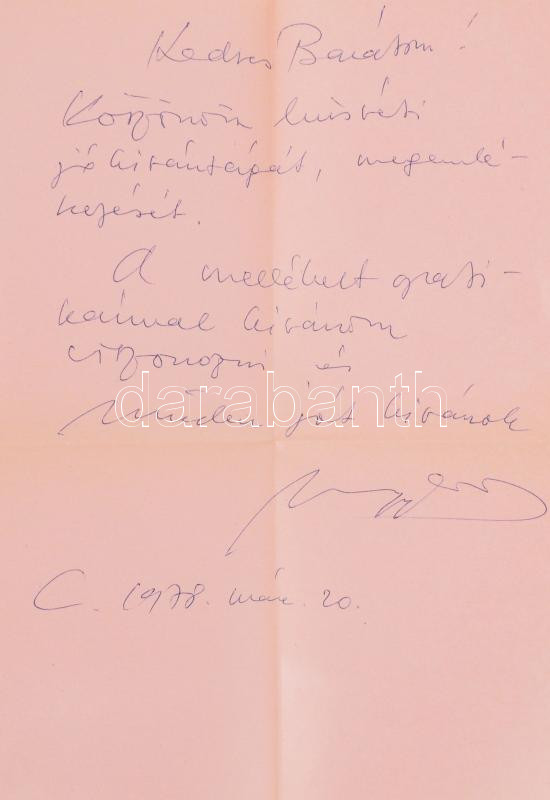 Kedves Barátom!
Köszönöm húsvéti
jókivánságát, megemlé-
kezését.
A mellékelt grafi-
kámmal kivánom
viszonozni és
darabanth
Minden jót kivánok
C. 1978. márc. 20.